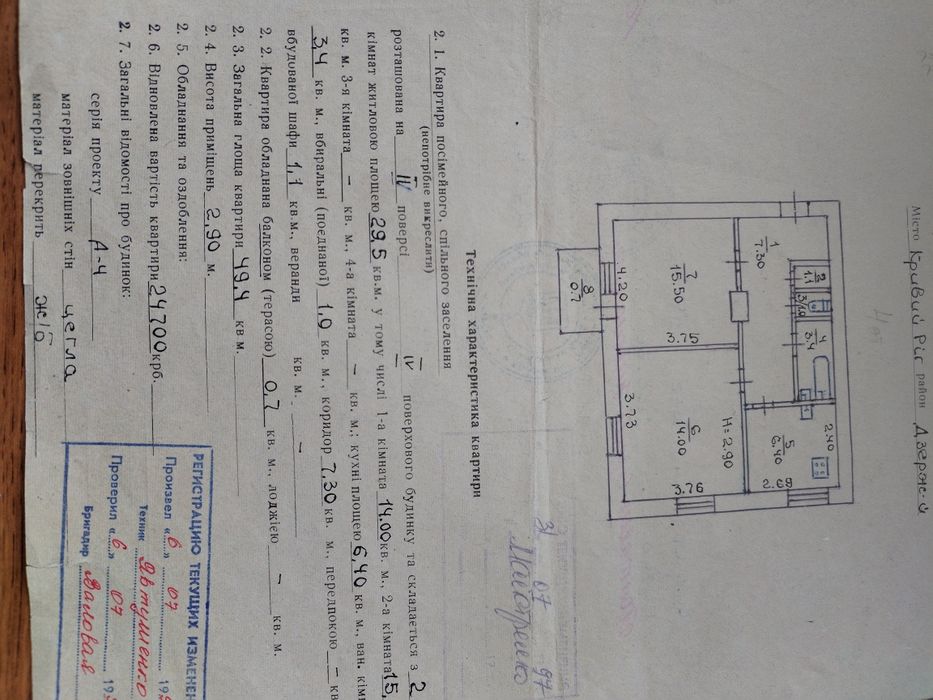 Місто Кривий Ріг район Дзерж-й
1
7.30
2
1.1
3/1.0
4
3.4
5
6.40
2.40
2.69
7
15.50
4.20
3.75
8
0.7
6
14.00
H=2.90
3.73
3.76
Технічна характеристика квартири
2. 1. Квартира посімейного, спільного заселення
(непотрібне викреслити)
розташована на IV поверсі IV поверхового будинку та складається з 2
кімнат житловою площею 29,5 кв.м. у тому числі 1-а кімната 14.00 кв. м., 2-а кімната 15,
кв. м. 3-я кімната – кв. м. 4-а кімната – кв. м.; кухні площею 6,40 кв. м., ван. кім
3,4 кв. м., вбиральні (поєднаної) 1.0 кв. м., коридор 7.30 кв. м., передпокою – кв
вбудованої шафи 1,1 кв.м., веранди – кв. м.
2. 2. Квартира обладнана балконом (терасою) 0,7 кв. м., лоджією – кв. м.
2. 3. Загальна площа квартири 49.4 кв м.
2. 4. Висота приміщень 2,90 м.
2. 5. Обладнання та оздоблення:
2. 6. Відновлена вартість квартири 24700 крб.
2. 7. Загальні відомості про будинок:
серія проекту Д-4
матеріал зовнішніх стін цегла
матеріал перекрить ж/б
РЕГИСТРАЦИЮ ТЕКУЩИХ ИЗМЕНЕН
Произвел «6» 07 199
Техник Явтушенко
Проверил «6» 07 199
Бригадир Валовая
31 07 97